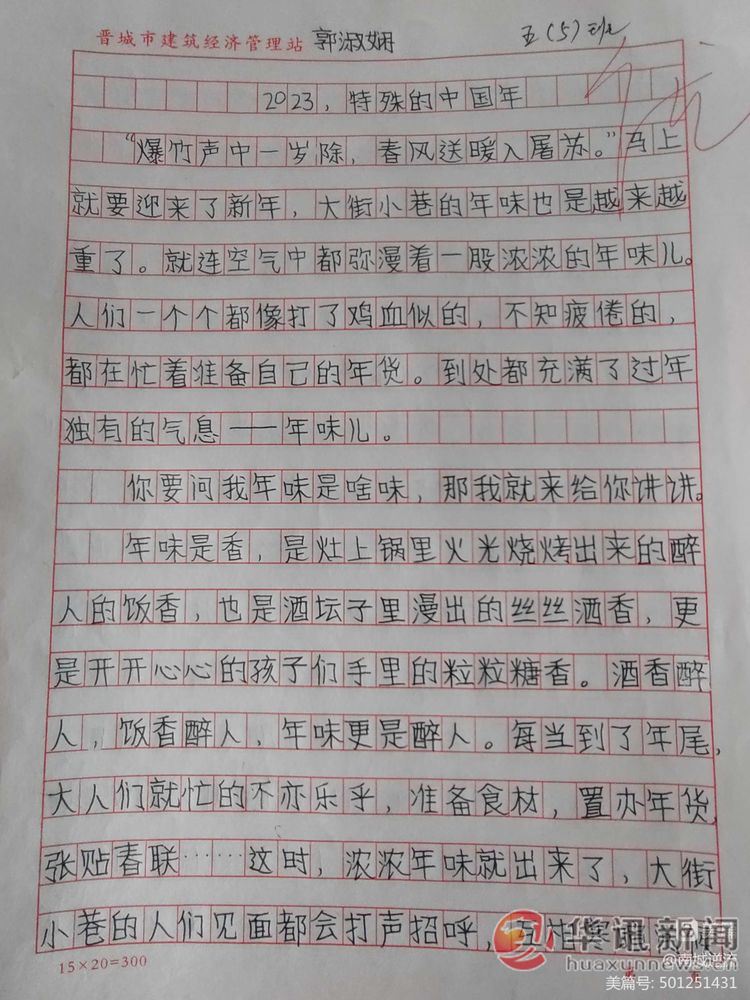 晋城市建筑经济管理站 郭淑娴 五(5)班
2023，特殊的中国年
“爆竹声中一岁除，春风送暖入屠苏。”马上
就要迎来了新年，大街小巷的年味也是越来越
重了。就连空气中都弥漫着一股浓浓的年味儿。
人们一个个都像打了鸡血似的，不知疲倦的，
都在忙着准备自己的年货。到处都充满了过年
独有的气息——年味儿。
你要问我年味是啥味，那我就来给你讲讲。
年味是香，是灶上锅里火光烧烤出来的醉
人的饭香，也是酒坛子里漫出的丝丝酒香，更
是开开心心的孩子们手里的粒粒糖香。酒香醉
人，饭香醉人，年味更是醉人。每当到了年尾，
大人们就忙的不亦乐乎，准备食材，置办年货，
张贴春联……这时，浓浓年味就出来了，大街
小巷的人们见面都会打声招呼，互相
15×20=300
华讯新闻
huaxunnews.cn
@南城逆流
美篇号: 501251431